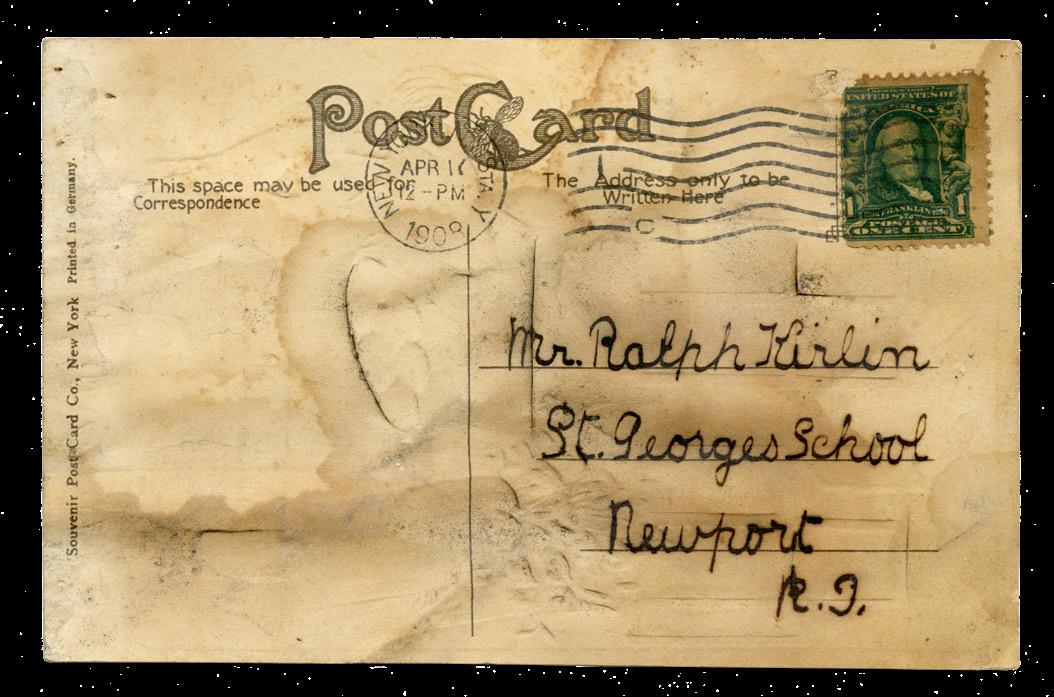 Post Card
This space may be used for
Correspondence
The Address only to be
Written Here
NEW
STA. Y
APR 16
12 - PM
1908
UNITED STATES OF
AMERICA
1 FRANKLIN 1
POSTAGE
ONE CENT
Mr. Ralph Kirlin
St. Georges School
Newport
R.I.
Souvenir Post Card Co., New York Printed in Germany.